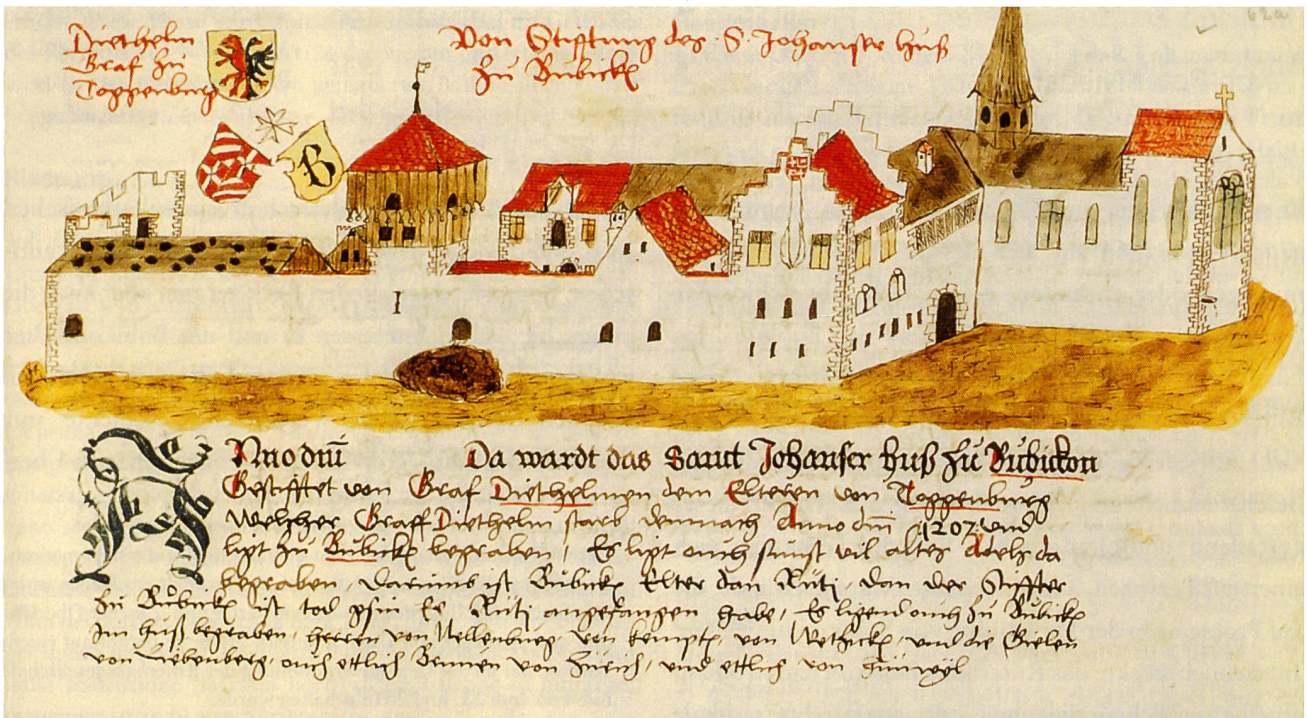 Diethelm
Graf zu
Toggenburg
Von Stifftung des S. Johanser huß
zu Bubickon
62a
B
I
Anno dm̄ Da wardt das Sanct Johanser huß zů Bůbickon
Gestifftet von Graf Diethelmen dem Elteren von Toggenburg
Welcher Graff Diethelm starb demnach Anno dm̄ 1207 und
ligt zů Bůbickon begraben / Es ligt ouch sunst vil altes Adels da
begraben, darumb ist Bůbickon Elter dan Rüti, dan der Stiffter
zů Bůbickon ist tod gsin Ee Rüti angefangen habe, Es ligend ouch zů Bůbickon
Im huß begraben, herren von Nellenburg, von kempten, von Wetzickon, und die Gielen
von Liebenberg, ouch ettlich von Zürich, und ettlich von